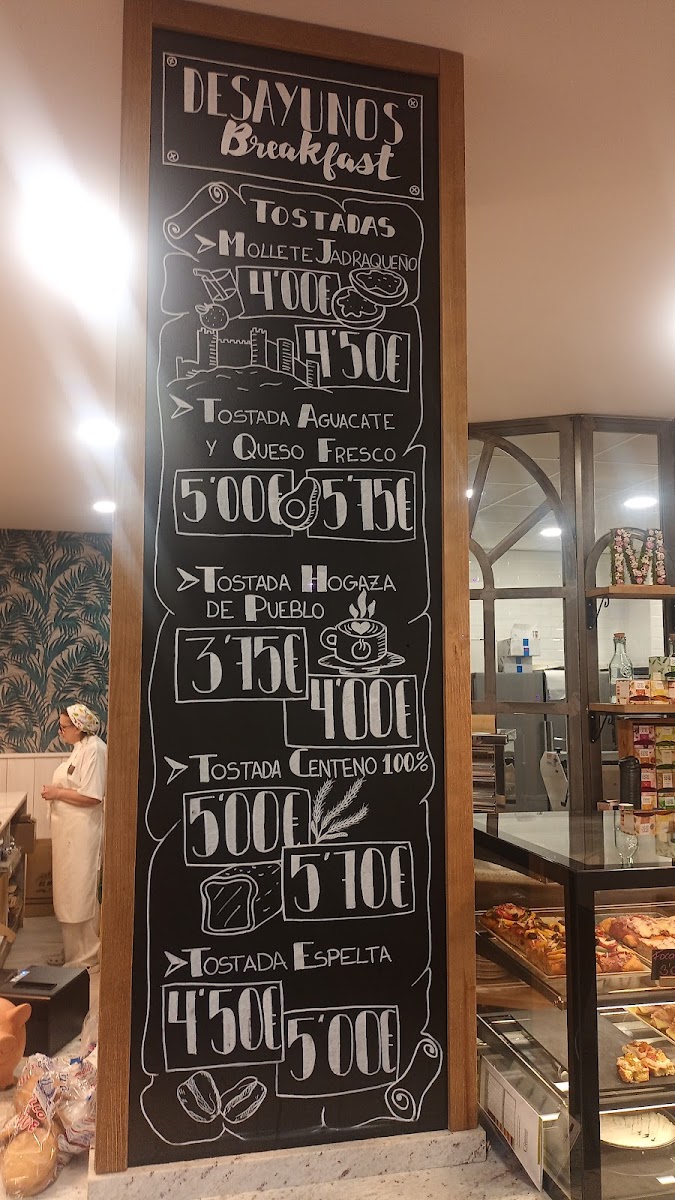 DESAYUNOS
Breakfast
TOSTADAS
MOLLETE JADRAQUEÑO
4'00€
4'50€
TOSTADA AGUACATE
Y QUESO FRESCO
5'00€ 5'75€
TOSTADA HOGAZA
DE PUEBLO
3'75€
4'00€
TOSTADA CENTENO 100%
5'00€
5'70€
TOSTADA ESPELTA
4'50€
5'00€
M